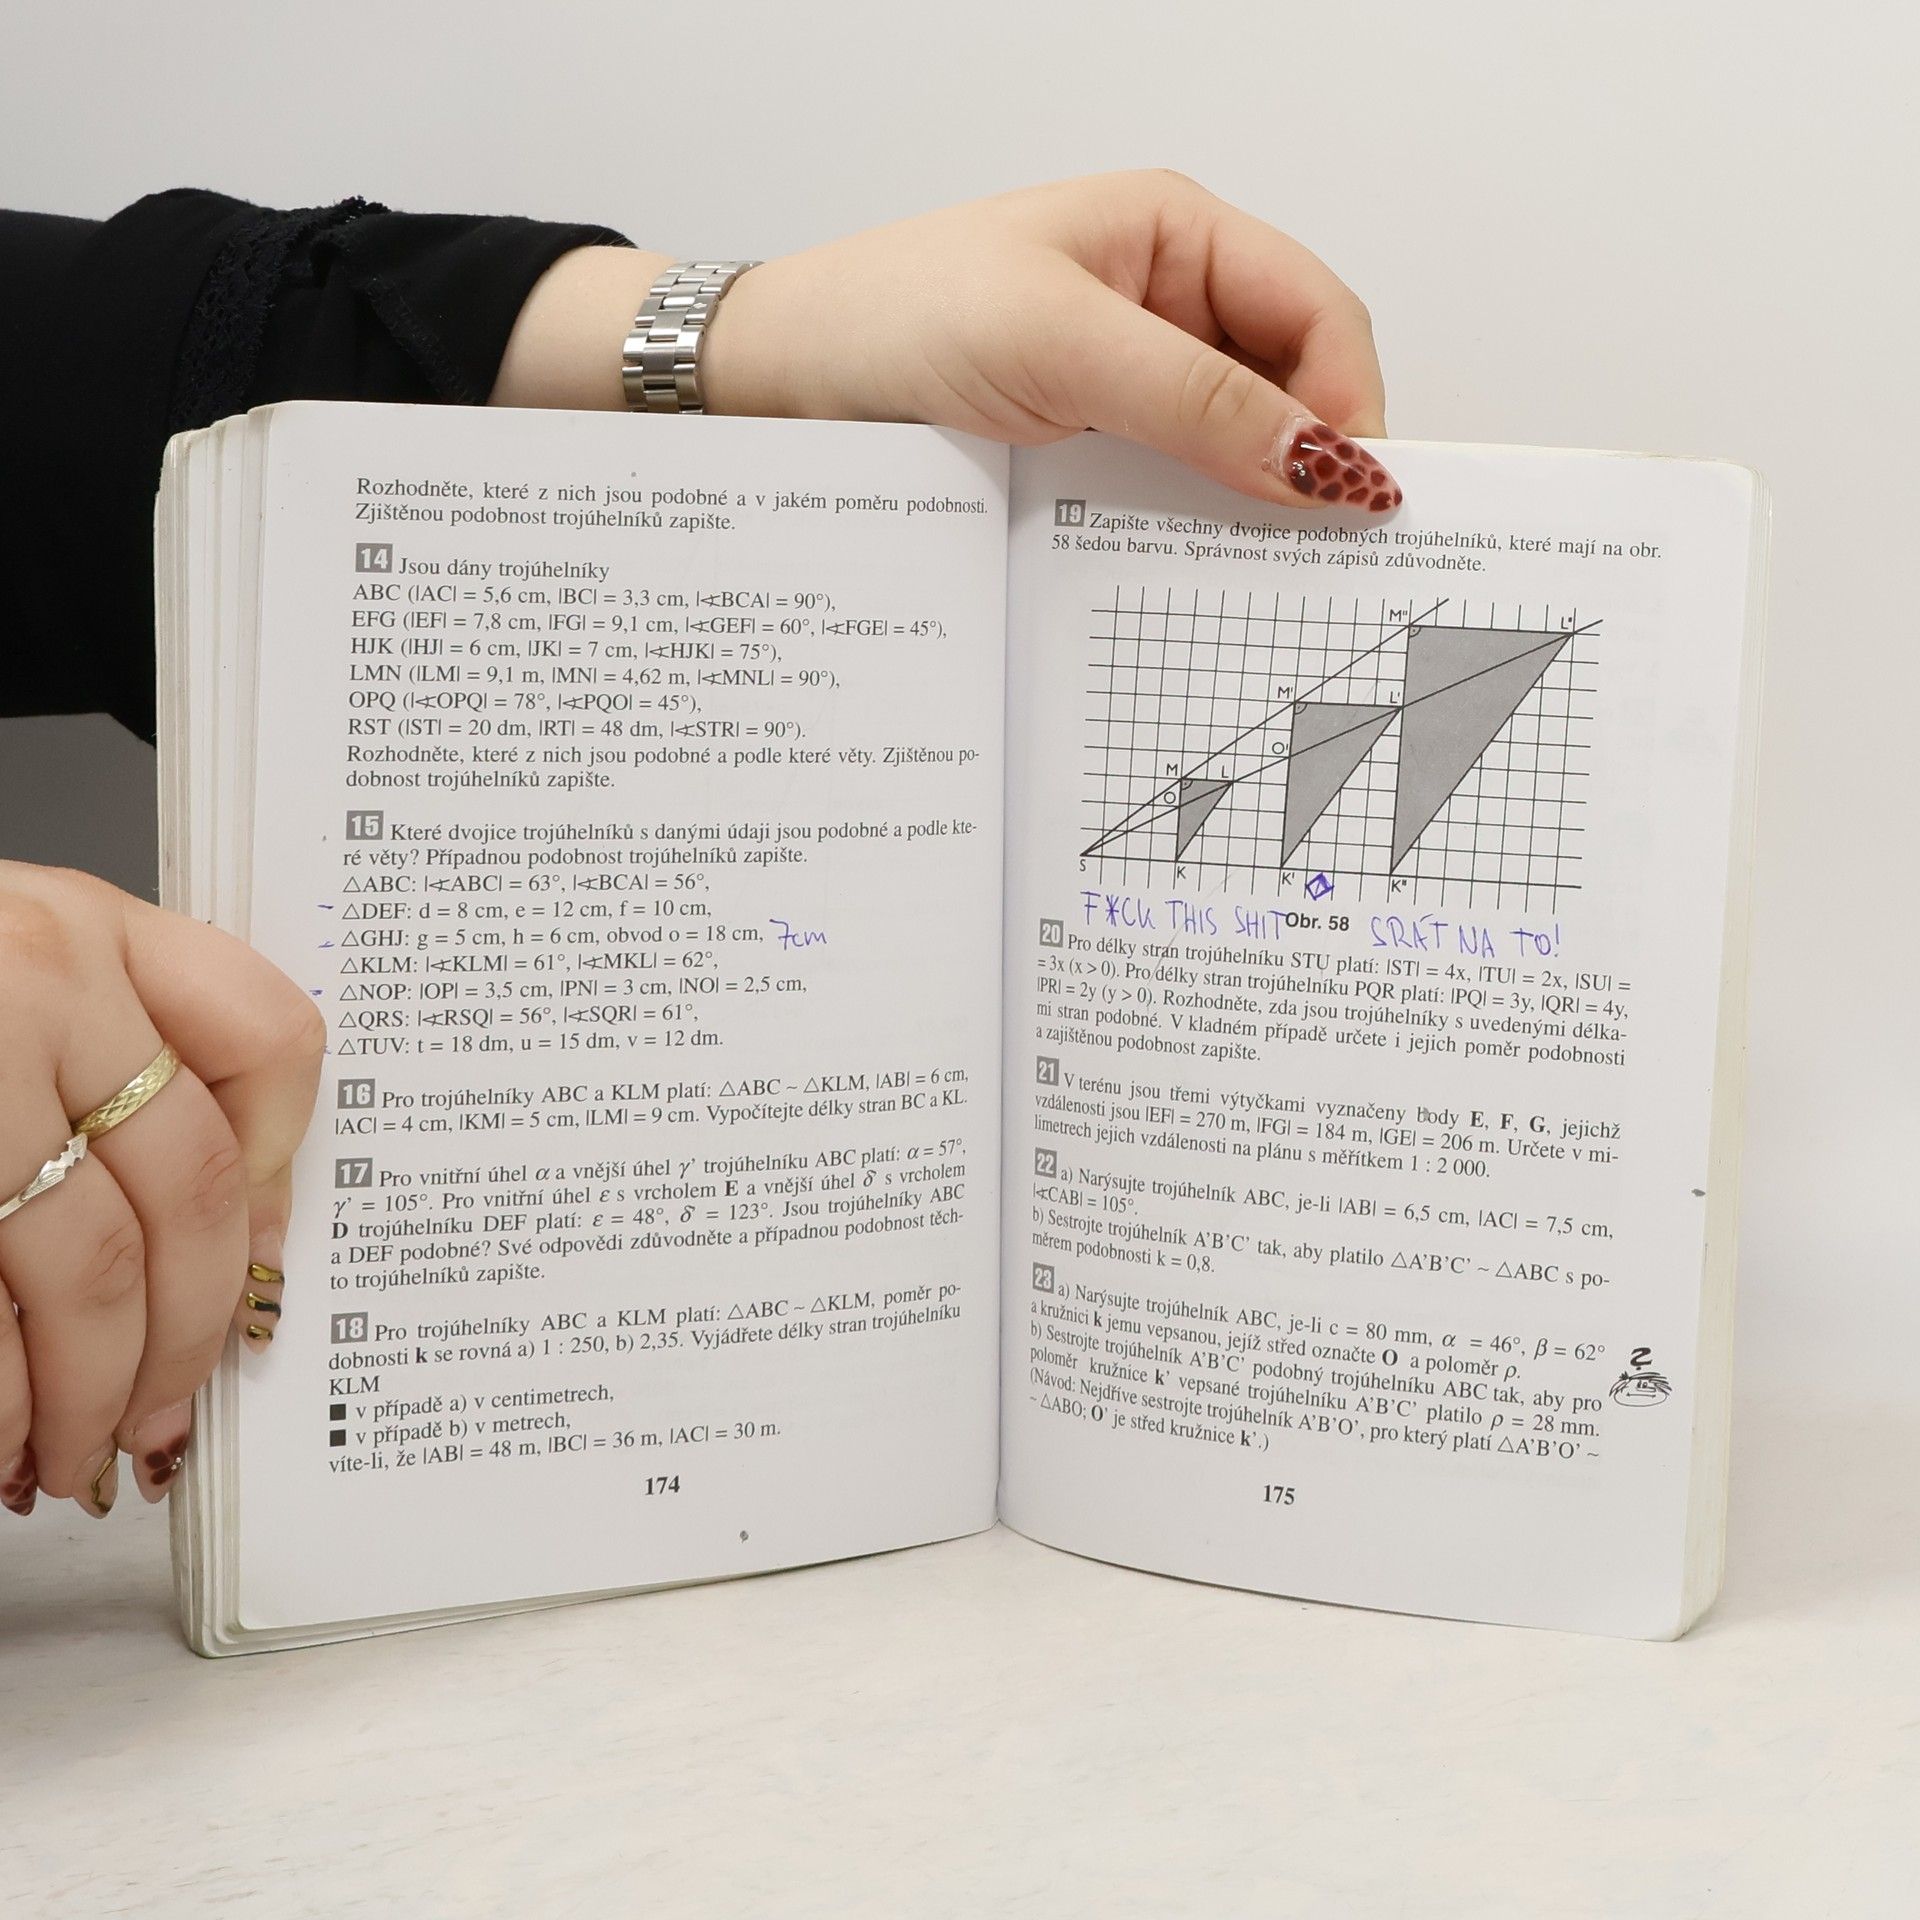 Rozhodněte, které z nich jsou podobné a v jakém poměru podobnosti.
Zjištěnou podobnost trojúhelníků zapište.
14 Jsou dány trojúhelníky
ABC (|AC| = 5,6 cm, |BC| = 3,3 cm, |∢BCA| = 90°),
EFG (|EF| = 7,8 cm, |FG| = 9,1 cm, |∢GEF| = 60°, |∢FGE| = 45°),
HJK (|HJ| = 6 cm, |JK| = 7 cm, |∢HJK| = 75°),
LMN (|LM| = 9,1 m, |MN| = 4,62 m, |∢MNL| = 90°),
OPQ (|∢OPQ| = 78°, |∢PQO| = 45°),
RST (|ST| = 20 dm, |RT| = 48 dm, |∢STR| = 90°).
Rozhodněte, které z nich jsou podobné a podle které věty. Zjištěnou po-
dobnost trojúhelníků zapište.
15 Které dvojice trojúhelníků s danými údaji jsou podobné a podle kte-
ré věty? Případnou podobnost trojúhelníků zapište.
△ABC: |∢ABC| = 63°, |∢BCA| = 56°,
– △DEF: d = 8 cm, e = 12 cm, f = 10 cm,
△GHJ: g = 5 cm, h = 6 cm, obvod o = 18 cm, 7cm
△KLM: |∢KLM| = 61°, |∢MKL| = 62°,
– △NOP: |OP| = 3,5 cm, |PN| = 3 cm, |NO| = 2,5 cm,
△QRS: |∢RSQ| = 56°, |∢SQR| = 61°,
△TUV: t = 18 dm, u = 15 dm, v = 12 dm.
16 Pro trojúhelníky ABC a KLM platí: △ABC ~ △KLM, |AB| = 6 cm,
|AC| = 4 cm, |KM| = 5 cm, |LM| = 9 cm. Vypočítejte délky stran BC a KL.
17 Pro vnitřní úhel α a vnější úhel γ' trojúhelníku ABC platí: α = 57°,
γ' = 105°. Pro vnitřní úhel ε s vrcholem E a vnější úhel δ' s vrcholem
D trojúhelníku DEF platí: ε = 48°, δ' = 123°. Jsou trojúhelníky ABC
a DEF podobné? Své odpovědi zdůvodněte a případnou podobnost těch-
to trojúhelníků zapište.
18 Pro trojúhelníky ABC a KLM platí: △ABC ~ △KLM, poměr po-
dobnosti k se rovná a) 1 : 250, b) 2,35. Vyjádřete délky stran trojúhelníku
KLM
■ v případě a) v centimetrech,
■ v případě b) v metrech,
víte-li, že |AB| = 48 m, |BC| = 36 m, |AC| = 30 m.
174
19 Zapište všechny dvojice podobných trojúhelníků, které mají na obr.
58 šedou barvu. Správnost svých zápisů zdůvodněte.
M" L"
M' L'
O'
M L
O
S K K' K"
F*CK THIS SHIT Obr. 58 SRÁT NA TO!
20 Pro délky stran trojúhelníku STU platí: |ST| = 4x, |TU| = 2x, |SU| =
= 3x (x > 0). Pro délky stran trojúhelníku PQR platí: |PQ| = 3y, |QR| = 4y,
|PR| = 2y (y > 0). Rozhodněte, zda jsou trojúhelníky s uvedenými délka-
mi stran podobné. V kladném případě určete i jejich poměr podobnosti
a zajištěnou podobnost zapište.
21 V terénu jsou třemi výtyčkami vyznačeny body E, F, G, jejichž
vzdálenosti jsou |EF| = 270 m, |FG| = 184 m, |GE| = 206 m. Určete v mi-
limetrech jejich vzdálenosti na plánu s měřítkem 1 : 2 000.
22 a) Narýsujte trojúhelník ABC, je-li |AB| = 6,5 cm, |AC| = 7,5 cm,
|∢CAB| = 105°.
b) Sestrojte trojúhelník A'B'C' tak, aby platilo △A'B'C' ~ △ABC s po-
měrem podobnosti k = 0,8.
23 a) Narýsujte trojúhelník ABC, je-li c = 80 mm, α = 46°, β = 62°
a kružnici k jemu vepsanou, jejíž střed označte O a poloměr ρ.
b) Sestrojte trojúhelník A'B'C' podobný trojúhelníku ABC tak, aby pro
poloměr kružnice k' vepsané trojúhelníku A'B'C' platilo ρ = 28 mm.
(Návod: Nejdříve sestrojte trojúhelník A'B'O', pro který platí △A'B'O' ~
~ △ABO; O' je střed kružnice k'.)
175